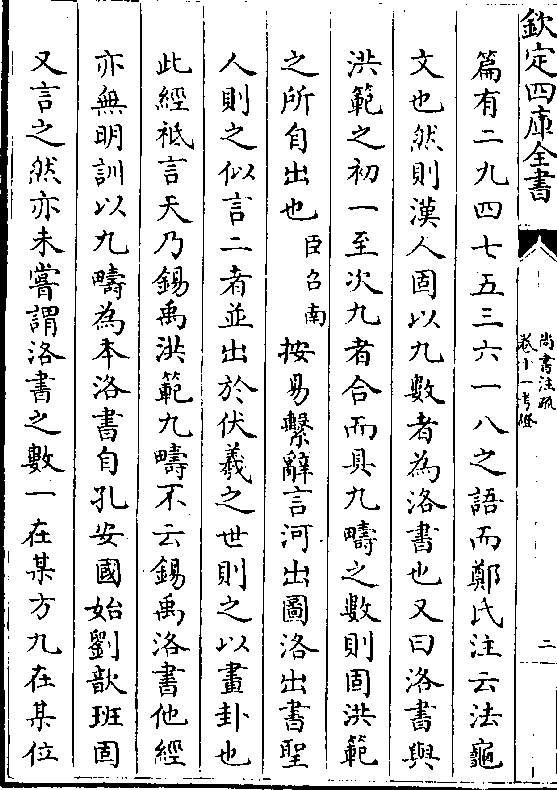 欽定四庫全書
尚書注疏
卷十一考證
二
篇有二九四七五三六一八之語而鄭氏注云法龜
文也然則漢人固以九數者為洛書也又曰洛書與
洪範之初一至次九者合而具九疇之數則固洪範
之所自出也臣召南按易繫辭言河出圖洛出書聖
人則之似言二者並出於伏羲之世則之以畫卦也
此經祗言天乃錫禹洪範九疇不云錫禹洛書他經
亦無明訓以九疇為本洛書自孔安國始劉歆班固
又言之然亦未嘗謂洛書之數一在某方九在某位